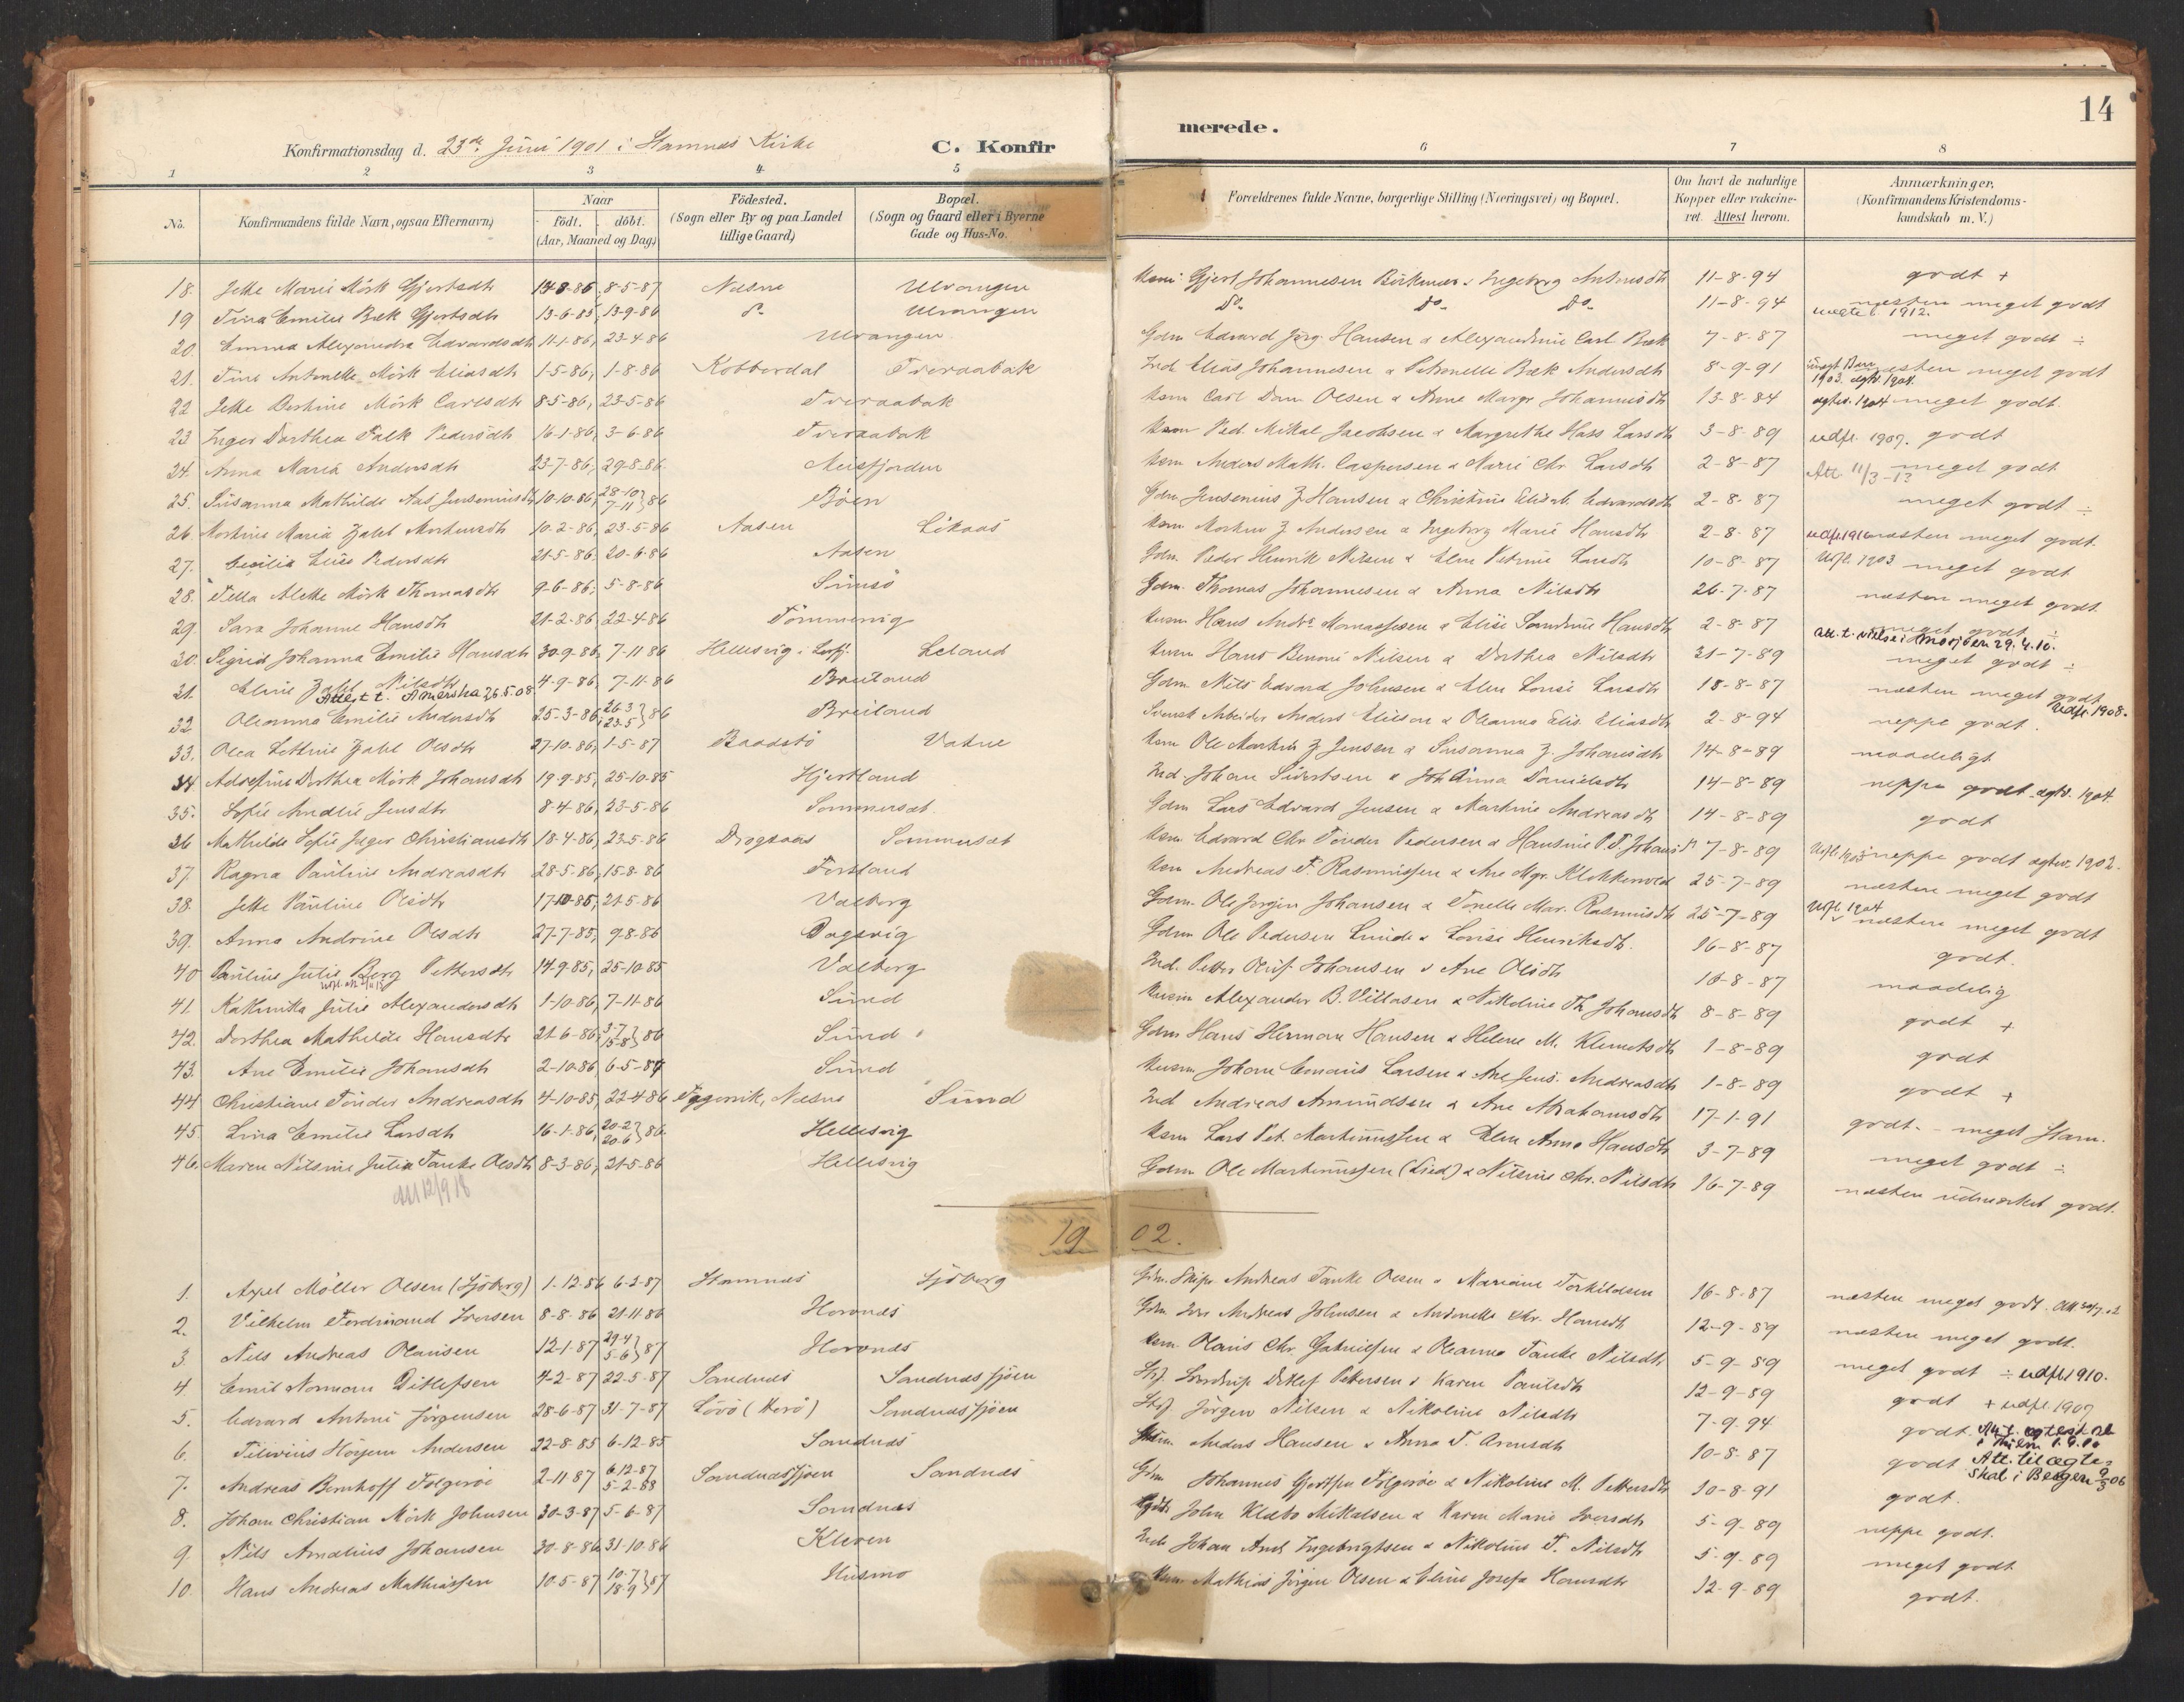 14
Konfirmationsdag d. 23de Juni 1901 i Stamnes Kirke
C. Konfirmerede.
1 2 3 4 5 6 7 8
No.
Konfirmandens fulde Navn, ogsaa Efternavn)
Naar
födt. döbt.
(Aar, Maaned og Dag)
Födested.
(Sogn eller By og paa Landet tillige Gaard)
Bopæl.
(Sogn og Gaard eller i Byerne Gade og Hus-No.
Forældrenes fulde Navne, borgerlige Stilling (Næringsvei) og Bopæl.
Om havt de naturlige Kopper eller vakcineret. Attest herom.
Anmærkninger,
(Konfirmandens Kristendomskundskab m. V.)
18. Jette Marie Mörk Gjertsdtr 8-86, 8-5-87 Nesne Ulvangen Gjert Johannesen & Ingeborg Antonsdtr 11-8-94 godt +
19 Tina Emilie Bæk Gjertsdtr 13-6-85, 13-9-86 do Ulvangen Do Do Do 11-8-94 næsten meget godt 1912.
20. Emma Alexandra Edvardsdtr 11-1-86, 23-4-86 Ulvangen Gdm Edvard Jörg. Hansen & Alexandrine Carl. Bæk 7-8-87 meget godt ÷
21. Tine Antonette Mörk Eliasdtr 1-5-86, 1-8-86 Kobberdal Tveraabak Ind. Elias Johannesen & Petronelle Bæk Andersdtr 8-9-91 næsten meget godt 1903. ægtev. 1904.
22 Jette Berthine Mörk Carlsdtr 8-5-86, 23-5-86 Tveraabak Ksm Carl Dan. Olsen & Anne Margr. Johannisdtr 13-8-84 ægtev. 1904 meget godt.
23 Inger Dorthea Falk Pedersdtr 16-1-86, 3-6-86 Tveraabak Ksm Ped. Mikal Jacobsen & Margrethe Hass Larsdtr 3-8-89 udfl. 1907. godt
24. Anna Maria Andersdtr 23-7-86, 29-8-86. Meisfjorden Ksm Anders Math. Caspersen & Marie Chr. Larsdtr 2-8-87 Att. 11/3-13 meget godt
25. Susanna Mathilde Aas Jenseniusdtr 10-10-86, 28-10 7-11 } 86 Böen Gdm. Jensenius J. Hansen & Christine Elisab. Edvardsdtr 2-8-87 meget godt ÷
26. Mortine Maria Zahl Mortensdtr 10-2-86, 23-5-86 Aasen Likaas Ksm Morten J Andersen & Ingeborg Marie Hansdtr 2-8-87 udfl. 1916 næsten meget godt.
27. Cecilia Elise Pedersdtr 21-5-86, 20-6-86 Aasen Gdm. Peder Henrik Nilsen & Elen Petrine Larsdtr 10-8-87 Utfl. 1903 meget godt
28. Pella Alette Mörk Thomasdtr 9-6-86, 5-8-86 Sundsö Gdm. Thomas Johannesen & Anna Nilsdtr 26-7-87 næsten meget godt.
29. Sara Johanne Hansdtr 21-2-86, 22-4-86 Tömmervig Husm Hans Andrs Monassesen & Elise Sandrine Hansdtr 2-8-87 meget godt ÷ att. t. vielse i Mosjöen 29.4.10.
30. Sigrid Johanna Emilie Hansdtr 30-9-86, 7-11-86 Hellesvig i Leirfj. Leland Husm Hans Benoni Nilsen & Dorthea Nilsdtr 31-7-89 meget godt ÷
31. Eline Zahl Nilsdtr 4-9-86, 7-11-86 Breiland Gdm. Nils Edvard Johnsen & Elen Lovise Larsdtr 18-8-87 næsten meget godt Udfl. 1908.
Attest t. Amerika 26.5.08
32 Oleanna Emilie Andersdtr 25-3-86, 26-3 23-5 } 86 Breiland Svensk Arbeider Anders Elieson & Oleanna Elis. Eliasdtr 2-8-94 neppe godt.
33. Olea Lethine Zahl Olsdtr 27-10-86, 1-5-87 Baadstö Vatne Ksm Ole Martin J Jensen & Susanna J. Johansdtr 14-8-89 maadeligt
34 Adolfine Dorthea Mörk Johansdtr 19-9-85, 25-10-85 Hjertland Ind. Johan Sivertsen & Johanna Danielsdtr 14-8-89 neppe godt ægtv. 1904.
35. Sofie Amalie Jensdtr 8-4-86, 23-5-86 Sommerset. Gdm Lars Edvard Jensen & Martine Andreasdtr 14-8-89 godt
36 Mathilde Sofie Jæger Christiansdtr 18-4-86, 23-5-86 Dragsaas Sommerset Ksm. Edvard Chr Tönder Pedersen & Hansine P.T. Johansdtr 7-8-89 Utfl. 1903 neppe godt ægtev. 1902.
37. Ragna Pauline Andreasdtr 28-5-86, 15-8-86 Forsland Ksm Andreas F. Rasmussen & Ane Mgr. Klokkervold 25-7-89 næsten meget godt
38. Jette Pauline Olsdtr 17-10-85, 21-5-86 Valberg Gdm. Ole Jörgen Johansen & Tonelle Mar. Rasmusdtr 25-7-89 Utfl. 1904 næsten meget godt
39. Anna Andrine Olsdtr 27-7-85, 9-8-86 Dagsvig Gdm Ole Pedersen Lunde & Lovise Henriksdtr. 16-8-87 godt.
40 Pauline Julie Berg Pettersdtr 14-9-85, 25-10-85 Valberg Ind. Petter Oluf Johansen & Ane Olsdtr 16-8-87 maadelig
41. Kathinka Julie Alexandersdtr 1-10-86, 7-11-86 Sund Husm Alexander B. Villasen & Nikoline Th. Johansdtr 8-8-89 godt +
42. Dorthea Mathilde Hansdtr 21-6-86, 3-7 15-8 } 86 Sund Gdm Hans Herman Hansen & Helene M. Klemetsdtr 1-8-89 godt
43. Ane Emilie Johansdtr 2-10-86 6-5-87 Sund Husm. Johan Emaus Larsen & Ane Jens. Andreasdtr 1-8-89 godt +
44 Christiane Tönder Andreasdtr 4-10-85, 22-4-86 Nesne Sund Ind Andreas Amundsen & Ane Abrahamsdtr 17-1-91 godt. - meget Stam.
45. Lina Emilie Larsdtr 16-1-86, 20-2 20-6 } 86 Hellesvig Ksm Lars Pet. Martinussen & Elen Anna Hansdtr 3-7-89 meget godt ÷
46. Maren Nilsine Julia Tanke Olsdtr 8-3-86, 21-5-86 Hellesvig Gdm Ole Martinussen (Lied) & Nilsine Chr. Nilsdtr 16-7-89 næsten udmerket godt.
Att 12/9 18
1902.
1. Axel Möller Olsen (Sjöberg) 1-12-86 6-2-87 Stamnes Sjöberg Gdm. Skipr. Andreas Tanke Olsen & Mariane Torkildsen 16-8-87 næsten meget godt.
2. Vilhelm Ferdinand Iversen 8-8-86 21-11-86 Horvnes Gdm Iver Andreas Johnsen & Antonette Chr. Hansdtr 12-9-89 næsten meget godt.
3. Nils Andreas Olausen 12-1-87 29-4 5-6 } 87 Horvnes Ksm. Olaus Chr. Gabrielsen & Oleanna Tanke Nilsdtr 5-9-89 meget godt ÷ udfl. 1910.
4. Emil Norman Ditlefsen 4-2-87 22-5-87 Sandnes Sandnessjöen Strf. Ditlef Pettersen & Karen Paulsdtr 12-9-89 godt + udfl. 1907
5. Edvard Antoni Jörgensen 28-6-87 31-7-87 Lövö (Herö) Sandnessjöen Strf. Jörgen Nilsen & Nikoline Nilsdtr 7-9-94 godt.
6. Andersen 22-8-85 6-12-85 Sandnes Anders Hansen & Anna T. Arensdtr 10-8-87 godt Att. til ægteskab i Bergen 06
7. Andreas Bernhoff Folgeröe 2-11-87 6-12-87 5-2-88 Sandnessjöen Sandnes Gdm Johannes Gjertsen Folgeröe & Nikoline M. Pettersdtr 10-8-91 godt.
8. Johan Christian Mörk Johnsen 30-3-87 5-6-87 Sandnes John Klæbo Mikalsen & Karen Marie Iversdtr 5-9-89 neppe godt.
9. Nils Amalius Johansen 30-8-86 31-10-86 Kleven Ind. Johan And. Ingebrigtsen & Nikoline T. Nilsdtr 5-9-89 meget godt
10. Hans Andreas Mathiassen 10-5-87 10-7 18-9 } 87 Husmo Ksm. Mathias Jörgen Olsen & Eline Josefa Hansdtr 12-9-89 godt.